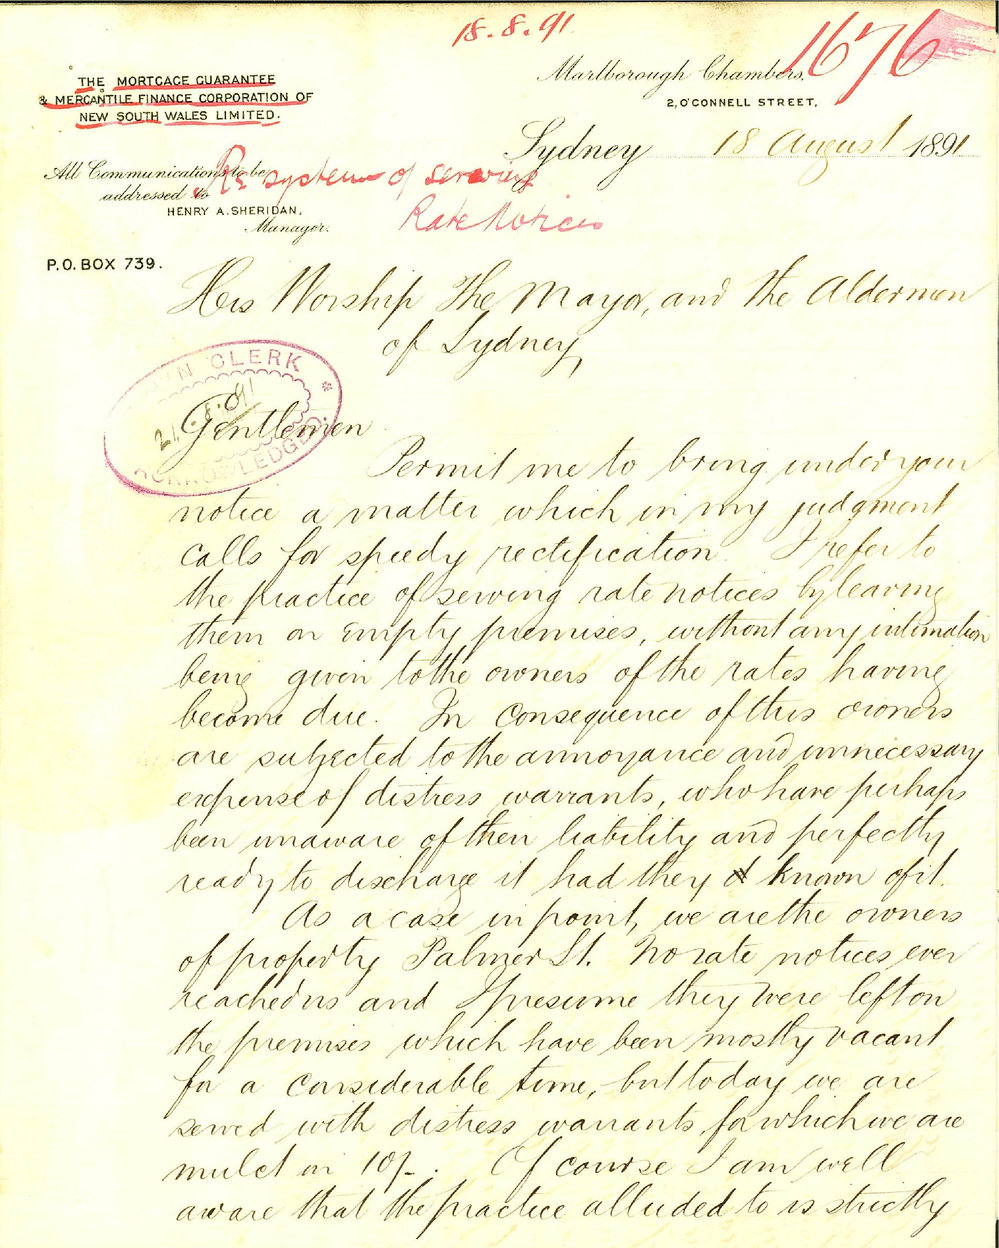 18.8.91
1676
THE MORTGAGE GUARANTEE
& MERCANTILE FINANCE CORPORATION OF
NEW SOUTH WALES LIMITED.
Marlborough Chambers,
2, O'CONNELL STREET,
Sydney 18 August 1891
All Communications to be
addressed to
HENRY A. SHERIDAN,
Manager.
Re system of serving
Rate Notices
P.O. BOX 739.
His Worship The Mayor, and the Aldermen
of Sydney,
TOWN CLERK
21.8.91
ACKNOWLEDGED.
Gentlemen
Permit me to bring under your
notice a matter which in my judgment
calls for speedy rectification. I refer to
the practice of serving rate notices by leaving
them on empty premises, without any intimation
being given to the owners of the rates having
become due. In consequence of this owners
are subjected to the annoyance and unnecessary
expense of distress warrants, who have perhaps
been unaware of their liability and perfectly
ready to discharge it had they known of it.
As a case in point, we are the owners
of property Palmer St. No rate notices ever
reached us and I presume they were left on
the premises which have been mostly vacant
for a considerable time, but today we are
served with distress warrants for which we are
mulct in 10/-. Of course I am well
aware that the practice alluded to is strictly